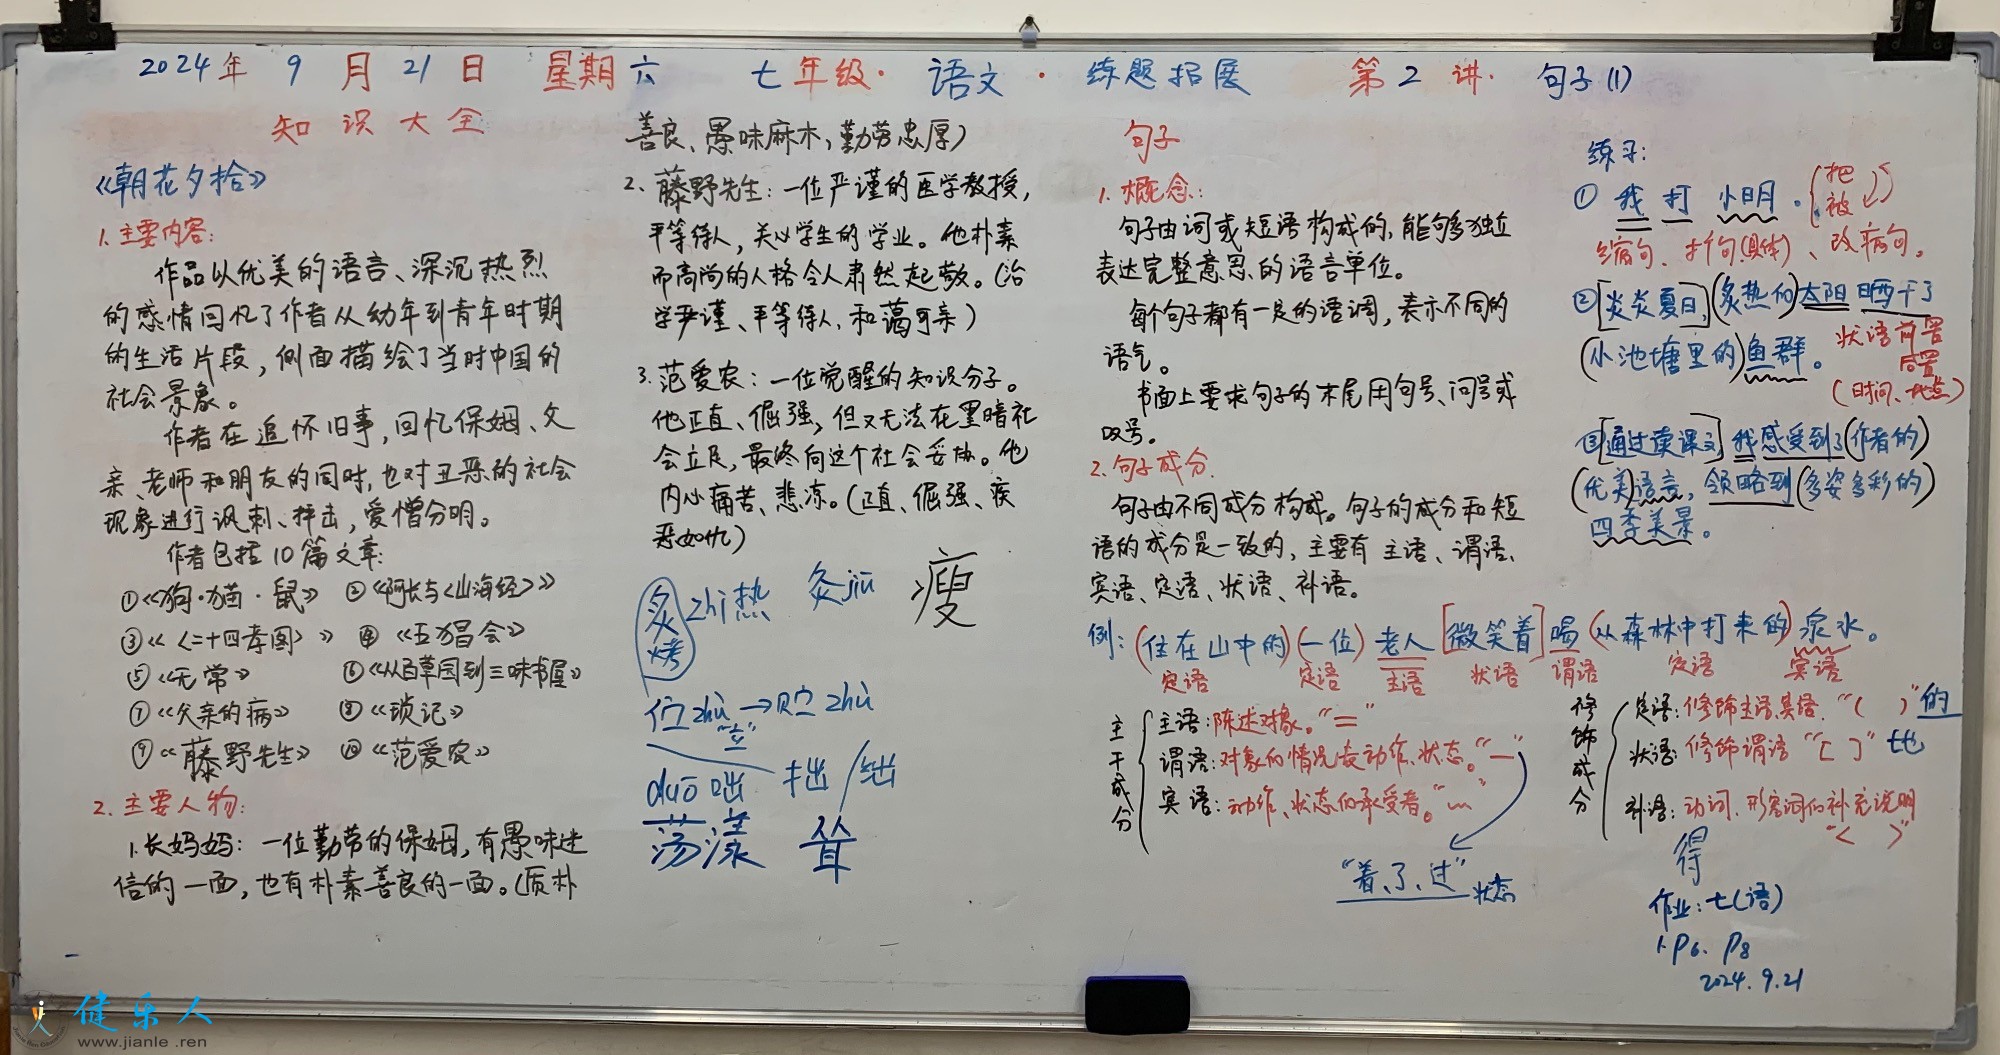 2024年 9 月 21 日 星期六 七年级·语文·练题拓展 第2讲·句子(1)
知识大全
《朝花夕拾》
1.主要内容:
作品以优美的语言、深沉热烈
的感情回忆了作者从幼年到青年时期
的生活片段，侧面描绘了当时中国的
社会景象。
作者在追怀旧事，回忆保姆、父
亲、老师和朋友的同时，也对丑恶的社会
现象进行讽刺、抨击，爱憎分明。
作者包括10篇文章:
①《狗·猫·鼠》 ②《阿长与〈山海经〉》
③《〈二十四孝图〉》 ④《五猖会》
⑤《无常》 ⑥《从百草园到三味书屋》
⑦《父亲的病》 ⑧《琐记》
⑨《藤野先生》 ⑩《范爱农》
2.主要人物:
1.长妈妈：一位勤劳的保姆，有愚味迷
信的一面，也有朴素善良的一面。(质朴
善良、愚味麻木，勤劳忠厚)
2.藤野先生：一位严谨的医学教授，
平等待人，关心学生的学业。他朴素
而高尚的人格令人肃然起敬。(治
学严谨、平等待人、和蔼可亲)
3.范爱农：一位觉醒的知识分子。
他正直、倔强，但又无法在黑暗社
会立足，最终向这个社会妥协。他
内心痛苦、悲凉。(正直、倔强、疾
恶如仇)
炙zhì热 灸jiǔ 瘦
烤
伫zhù→贮zhù
"立"
duō咄 拙/绌
荡漾 耸
句子
1.概念:
句子由词或短语构成的，能够独立
表达完整意思的语言单位。
每个句子都有一定的语调，表示不同的
语气。
书面上要求句子的末尾用句号、问号或
叹号。
2.句子成分.
句子由不同成分构成。句子的成分和短
语的成分是一致的，主要有主语、谓语、
宾语、定语、状语、补语。
例：(住在山中的)(一位)老人[微笑着]喝(从森林中打来的)泉水。
定语 定语 主语 状语 谓语 定语 宾语
主干成分
主语:陈述对象。"="
谓语:对象的情况表动作、状态。"—"
宾语:动作、状态的承受者。"﹏"
"着、了、过"状态
修饰成分
定语:修饰主语、宾语."( )"的
状语:修饰谓语"[ ]"地
补语:动词、形容词的补充说明
"< >"
得
练习:
①我 打 小明。{把 被
缩句、扩句(具体)、改病句。
②[炎炎夏日],(炙热的)太阳晒干了
(小池塘里的)鱼群。状语前置
后置
(时间、地点)
③[通过读课文],我感受到了(作者的)
(优美)语言，领略到(多姿多彩的)
四季美景。
作业:七(语)
1.P6. P8
2024.9.21
健乐人
www.jianle.ren